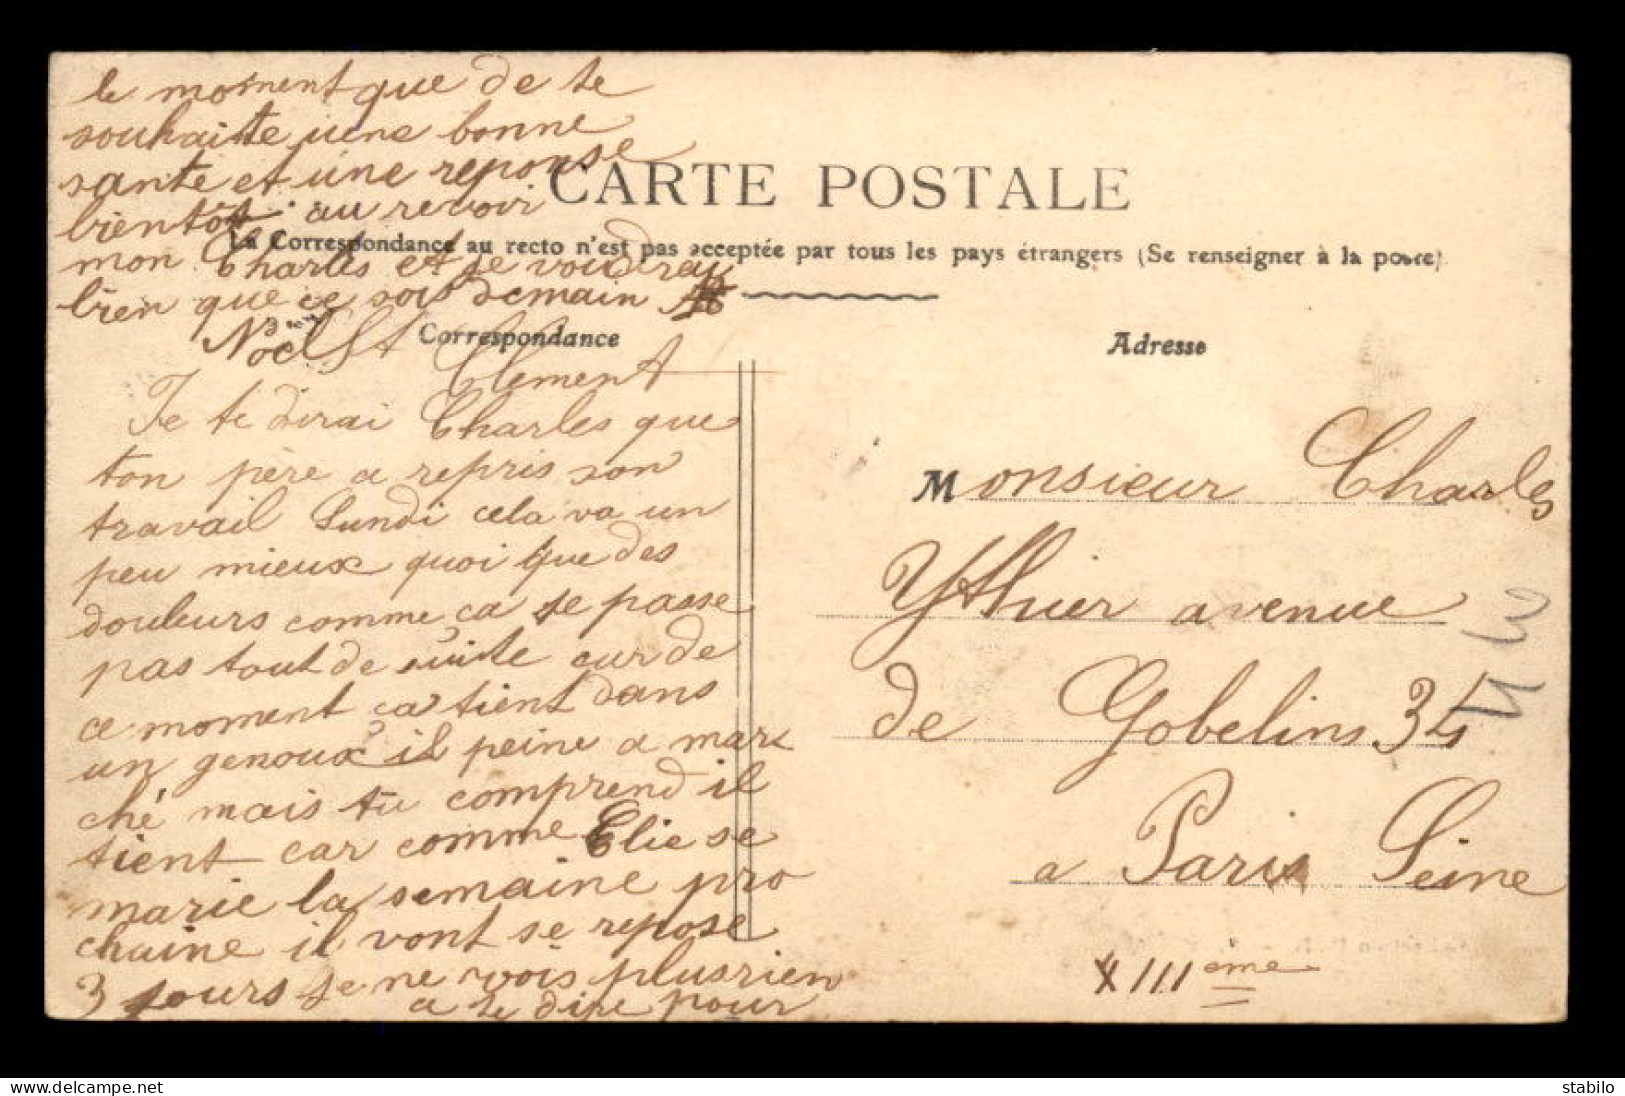 le moment que de te
souhaite une bonne
sante et une reponse
bientôt au revoir
mon Charles et je voudrai
bien que ce sois demain
CARTE POSTALE
La Correspondance au recto n'est pas acceptée par tous les pays étrangers (Se renseigner à la poste)
Correspondance
Adresse
Clement
Je te dirai Charles que
ton père a repris son
travail Lundi cela va un
peu mieux quoi que des
douleurs comme ça se passe
pas tout de suite cur de
ce moment ça tient dans
un genoux il peine a mar
ché mais tu comprend il
tient car comme Elie se
marie la semaine pro
chaine il vont se repose
3 jours je ne vois plus rien
a te dire pour
Monsieur Charles
Ythier avenue
de Gobelins 34
a Paris Seine
XIIIème
stabilo